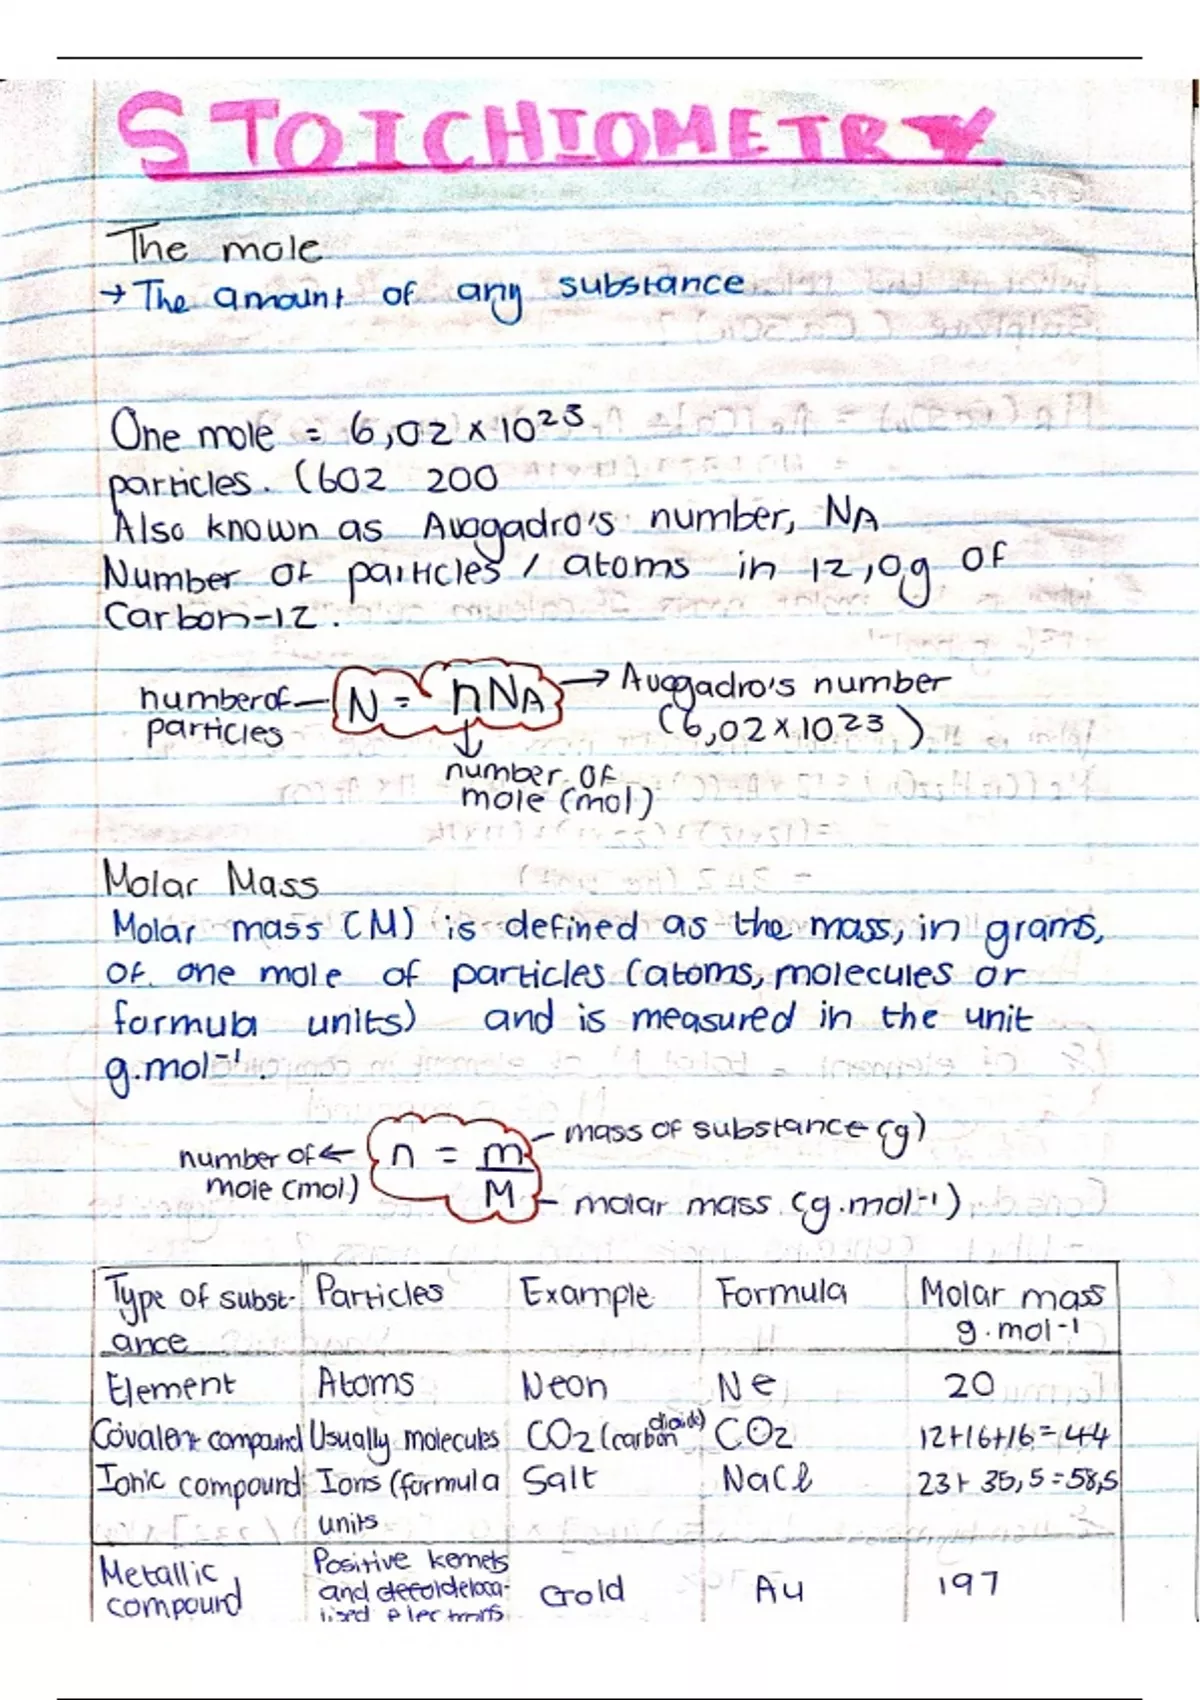 STOICHIOMETRY
The mole
→ The amount of any substance
One mole = 6,02 x 10²³
particles. (602 200
Also known as Avogadro's number, NA
Number of particles / atoms in 12,0g of
Carbon-12.
number of particles
N = nNA
→ Avogadro's number (6,02 x 10²³)
number of mole (mol)
Molar Mass
Molar mass (M) is defined as the mass, in grams,
of one mole of particles (atoms, molecules or
formula units) and is measured in the unit
g.mol⁻¹.
number of mole (mol)
n = m/M
mass of substance (g)
molar mass (g.mol⁻¹)
Type of subst-ance | Particles | Example | Formula | Molar mass g.mol⁻¹
Element | Atoms | Neon | Ne | 20
Covalent compound | Usually molecules | CO2 (carbon dioxide) | CO2 | 12+16+16=44
Ionic compound | Ions (formula units | Salt | NaCl | 23+35,5=58,5
Metallic compound | Positive kernels and deloca-lised electrons | Gold | Au | 197